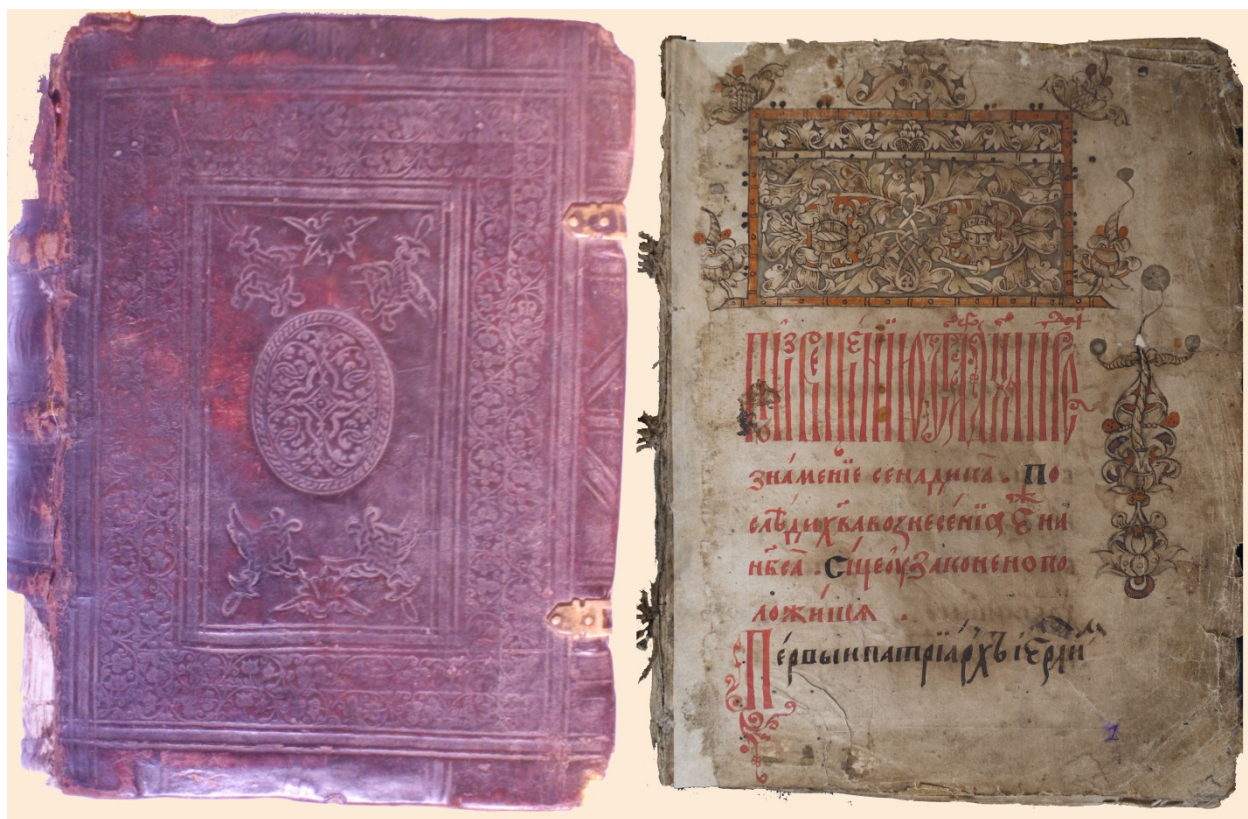 зна́менїе сенадика̀ . По
слѣди х҃ва вознесе́нїѧ є҆же на
нб҃са̀ . Си́це оу҆законено по
ложи́шѧ .
Пе́рвыи патрїа́рхъ і҆ер҇ли́
1